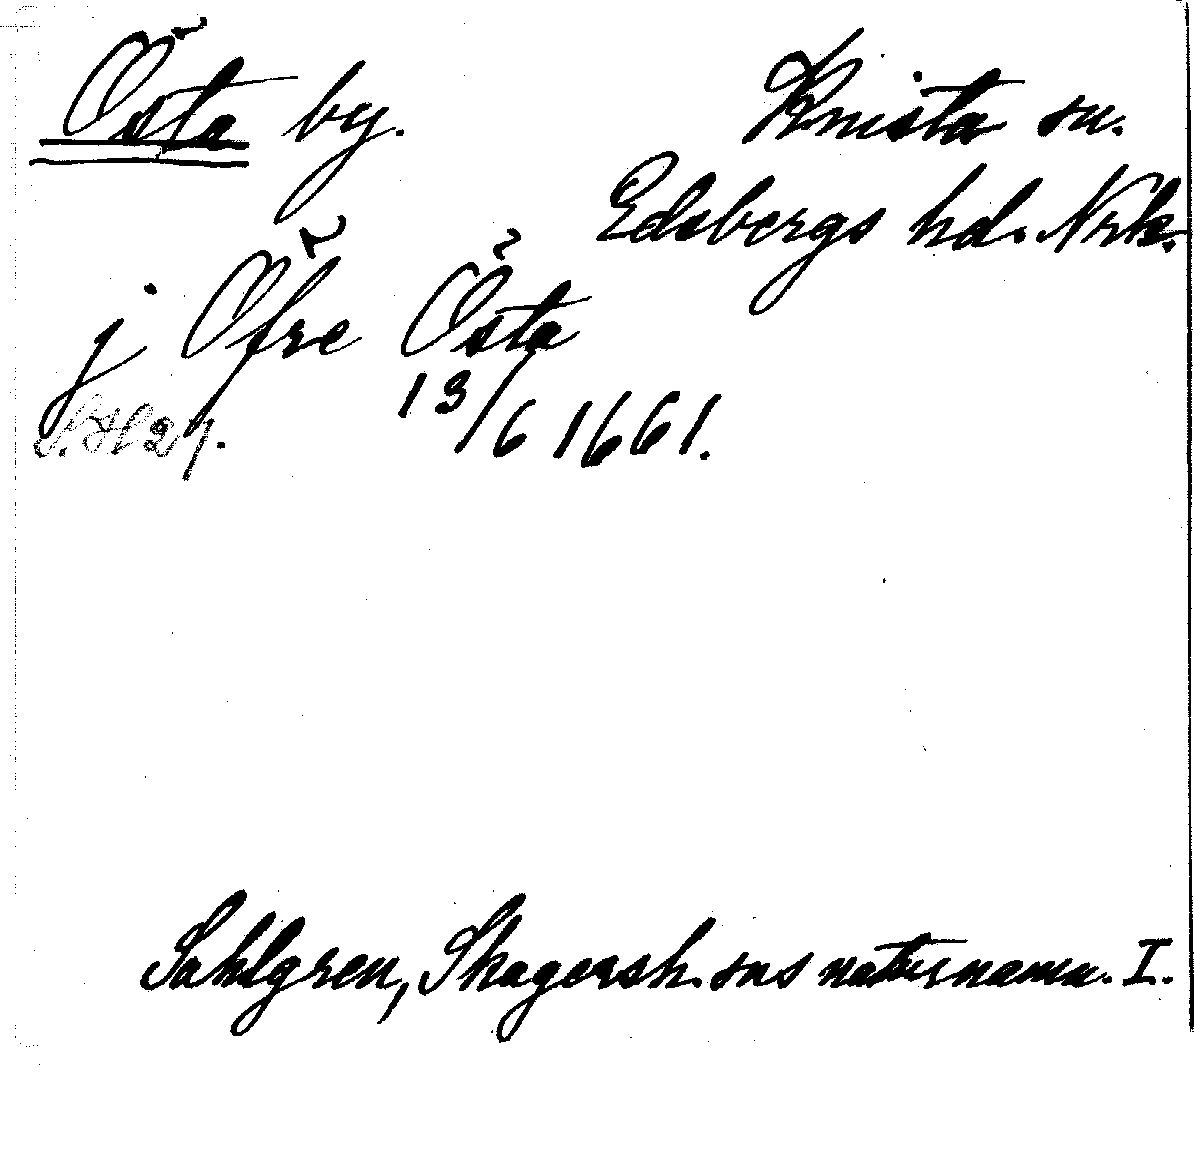 Östa by.
Knista sn.
Edsbergs hd. Nrk.
j Öfre Östa
13/6 1661.
Sahlgren, Skagersh. sns naturnamn. I.